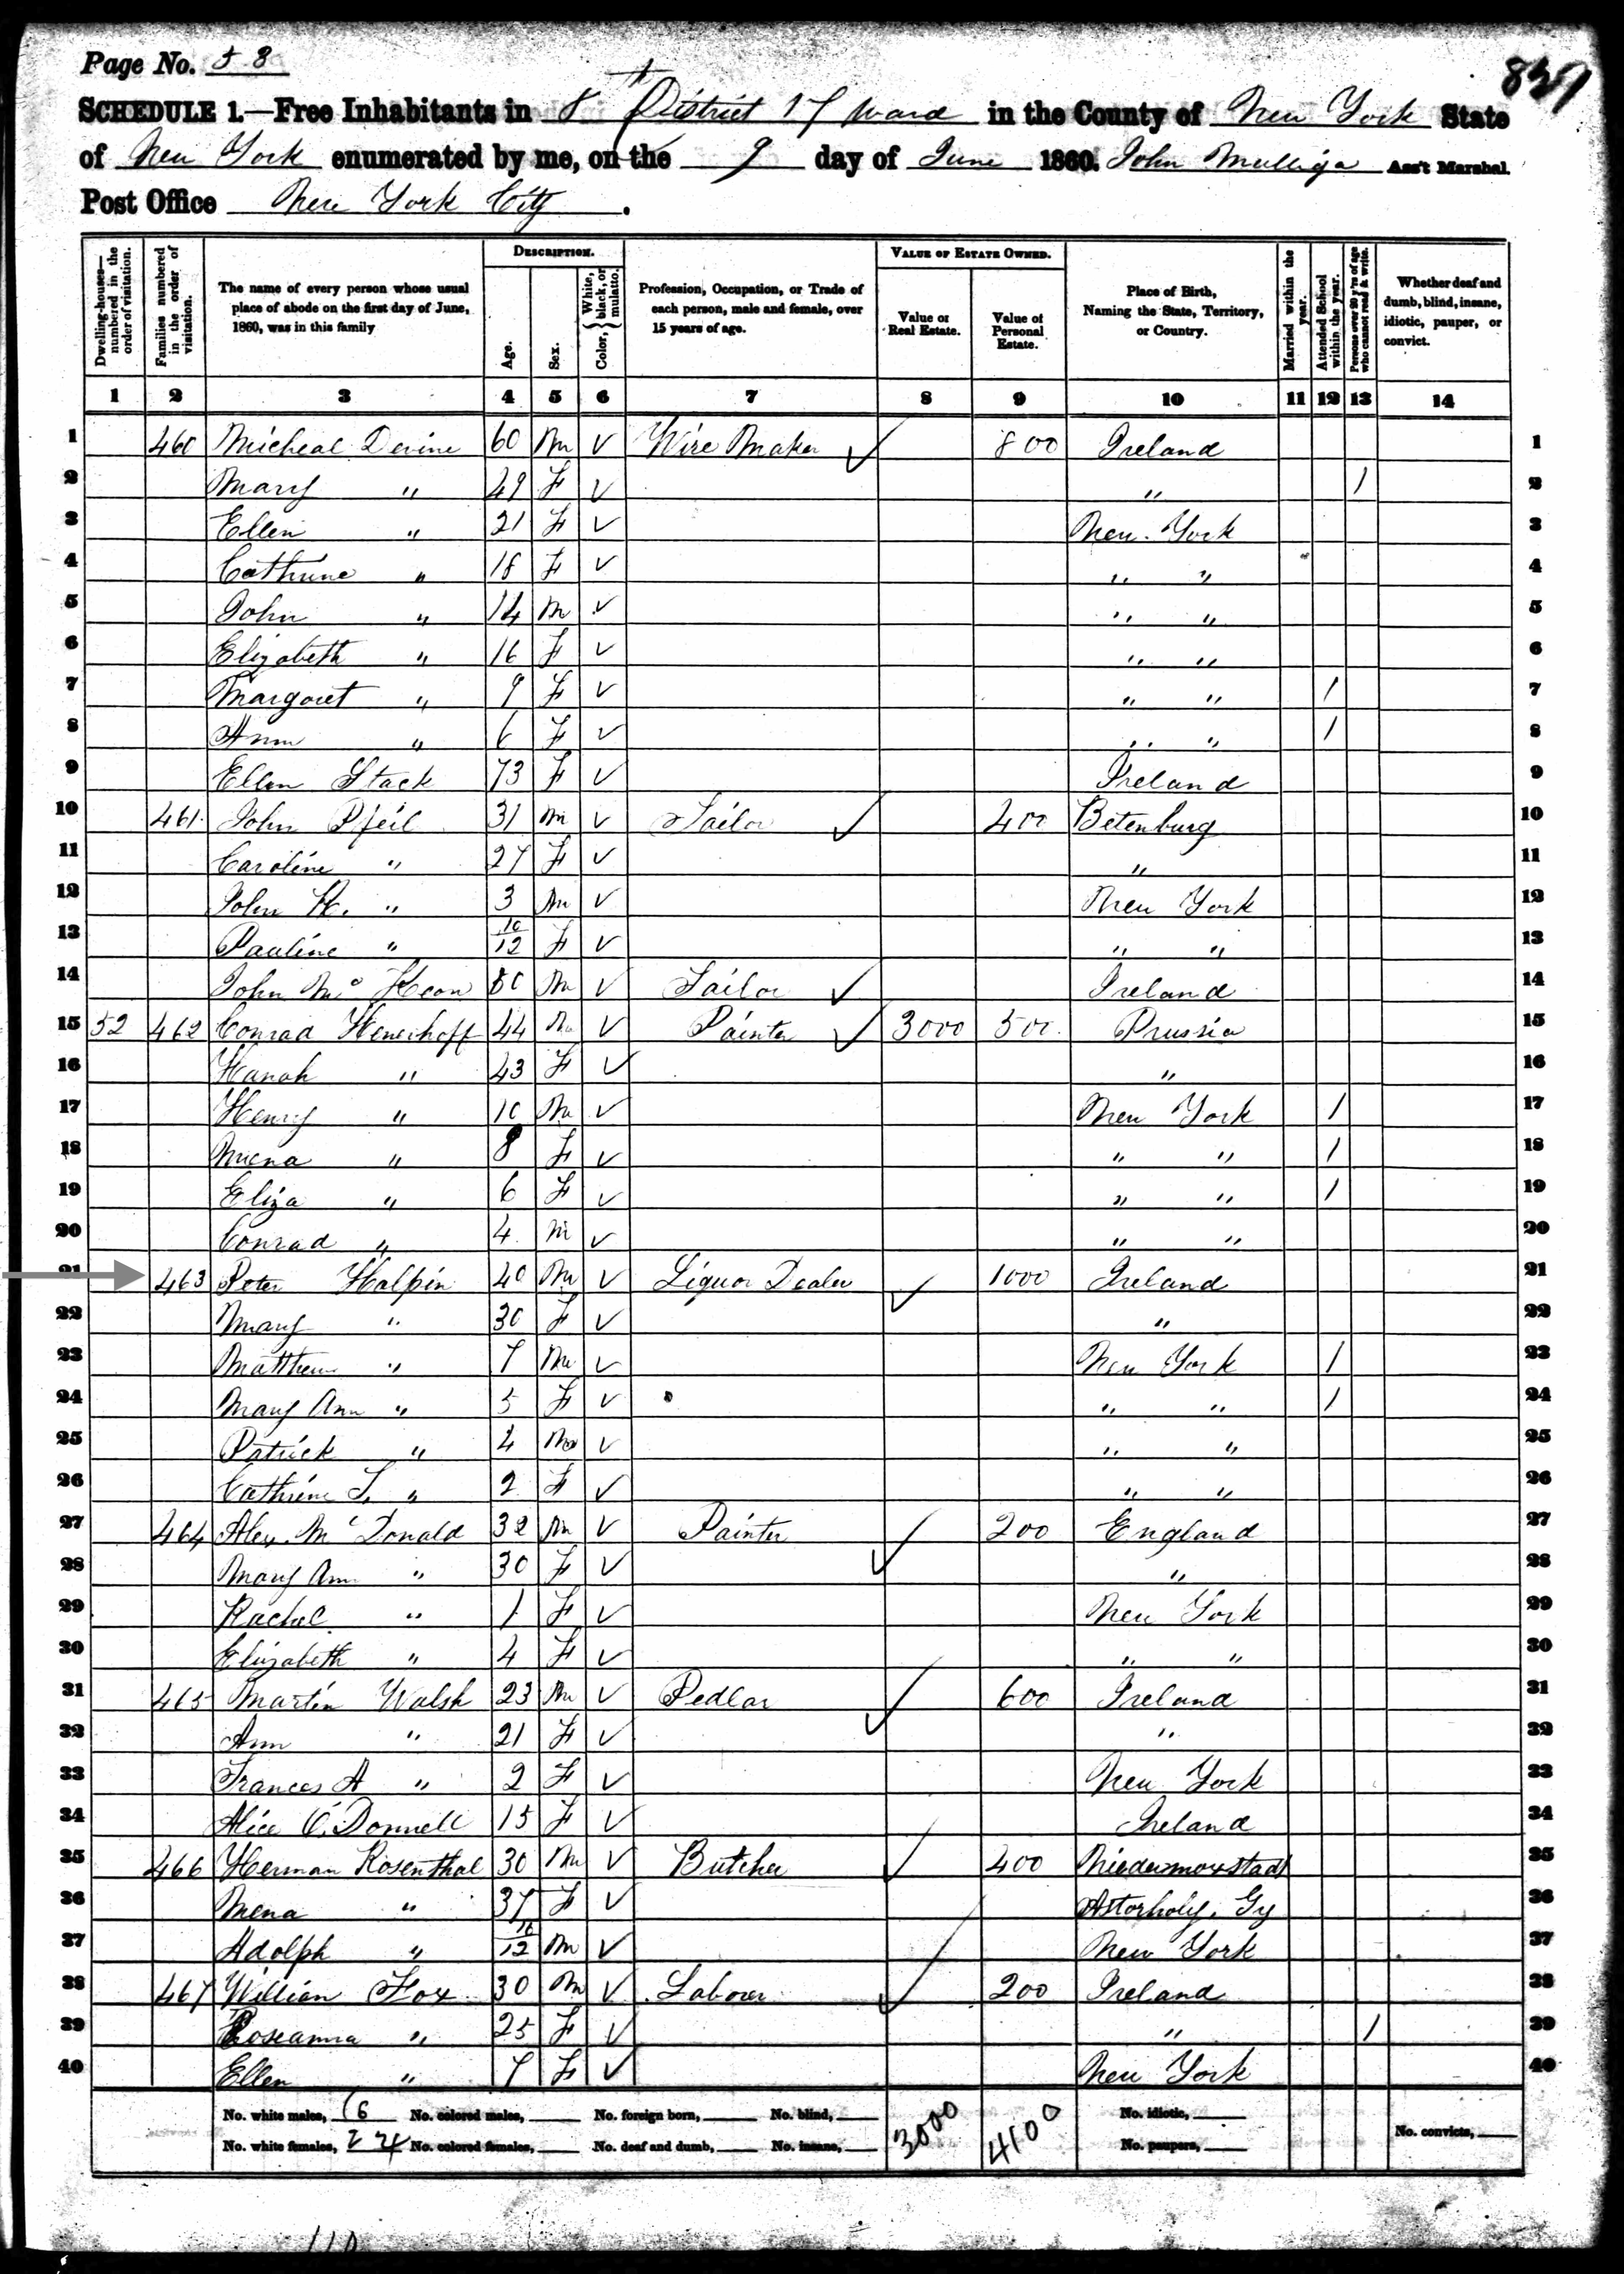 Page No. 58
837
SCHEDULE 1.—Free Inhabitants in 8th District 17 Ward in the County of New York State
of New York enumerated by me, on the 9 day of June 1860. John Mulliga Ass't Marshal.
Post Office New York City.
Dwelling-houses—numbered in the order of visitation. Families numbered in the order of visitation. The name of every person whose usual place of abode on the first day of June, 1860, was in this family DESCRIPTION. Age. Sex. Color, White, black, or mulatto. Profession, Occupation, or Trade of each person, male and female, over 15 years of age. VALUE OF ESTATE OWNED. Value of Real Estate. Value of Personal Estate. Place of Birth, Naming the State, Territory, or Country. Married within the year. Attended School within the year. Persons over 20 y'rs of age who cannot read & write. Whether deaf and dumb, blind, insane, idiotic, pauper, or convict.
1 2 3 4 5 6 7 8 9 10 11 12 13 14
1 460 Micheal Devine 60 m √ Wire Maker √ 800 Ireland 1
2 Mary " 49 F √ " / 2
3 Ellen " 21 F √ New York 3
4 Cathrine " 18 F √ " " 4
5 John " 14 m √ " " 5
6 Elizabeth " 16 F √ " " 6
7 Margaret " 9 F √ " " / 7
8 Ann " 6 F √ " " / 8
9 Ellen Stack 73 F √ Ireland 9
10 461 John Pfeil 31 m √ Tailor √ 400 Betenburg 10
11 Caroline " 27 F √ " 11
12 John H. " 3 m √ New York 12
13 Pauline " 10/12 F √ " " 13
14 John Mc Keon 50 m √ Tailor √ Ireland 14
15 52 462 Conrad 44 m √ Painter √ 3000 500 Prussia 15
16 Hanah " 43 F √ " 16
17 Henry " 10 m √ New York / 17
18 Miena " 8 F √ " " / 18
19 Eliza " 6 F √ " " / 19
20 Conrad " 4 m √ " " 20
21 463 Peter Halpin 40 m √ Liquor Dealer √ 1000 Ireland 21
22 Mary " 30 F √ " 22
23 Matthew " 7 m √ New York / 23
24 Mary Ann " 5 F √ " " / 24
25 Patrick " 4 m √ " " 25
26 Cathrine T. " 2 F √ " " 26
27 464 Alex. Mc Donald 32 m √ Painter √ 200 England 27
28 Mary Ann " 30 F √ " 28
29 Rachel " 1 F √ New York 29
30 Elizabeth " 4 F √ " " 30
31 465 Martin Walsh 23 m √ Pedlar √ 600 Ireland 31
32 Ann " 21 F √ " 32
33 Frances A " 2 F √ New York 33
34 Alice O'Donnell 15 F √ Ireland 34
35 466 Herman Rosenthal 30 m √ Butcher √ 400 35
36 Mena " 37 F √ 36
37 Adolph " 10/12 m √ New York 37
38 467 William Fox 30 m √ Laborer √ 200 Ireland 38
39 Roseanna " 25 F √ " / 39
40 Ellen " 7 F √ New York 40
No. white males, 16 No. colored males, No. foreign born, No. blind, 3000 4100 No. idiotic,
No. white females, 24 No. colored females, No. deaf and dumb, No. insane, No. paupers, No. convicts,
110